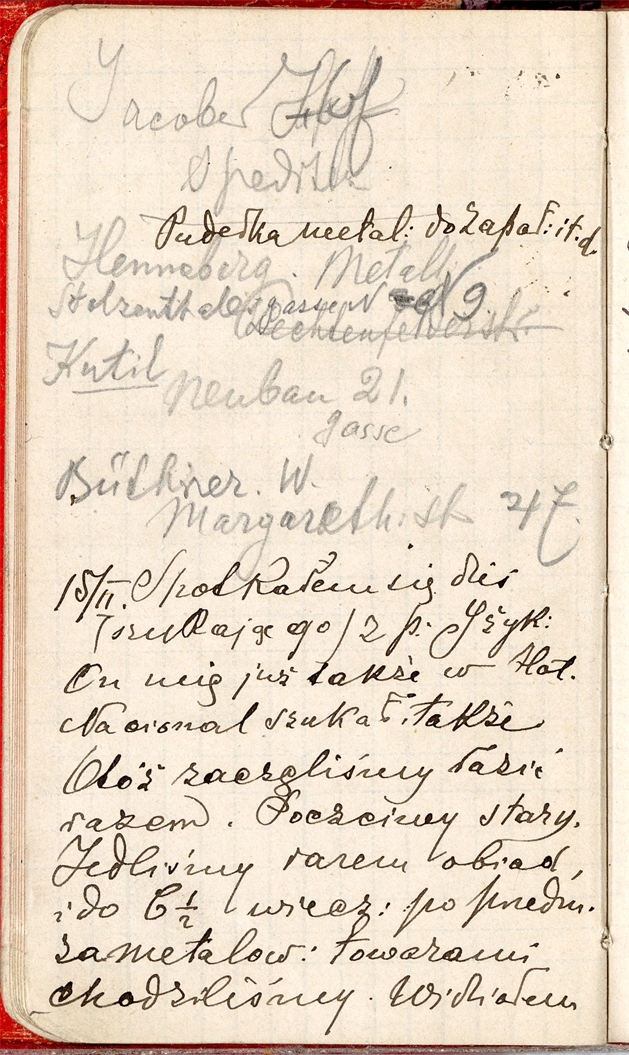 Jacober Hof
Spediteur
Pudełka metal: do zapał: i t. d.
Henneberg. Metall
Stelzenthalergasse N 9
Lerchenfelderstr.
Kutil
Neubau 21.
gasse
Büthner. W.
Margareth. str 47.
15/II. Spotkałem się dziś
(szukając go) z p. Jżyk:
On mię już także w Hot.
Nacional szukał, także
Otóż zaczęliśmy łazić
razem. Poczciwy stary.
Jedliśmy razem obiad,
i do 6 ½ wiecz: po przedm.
za metalow: towarami
chodziliśmy. Widziałem